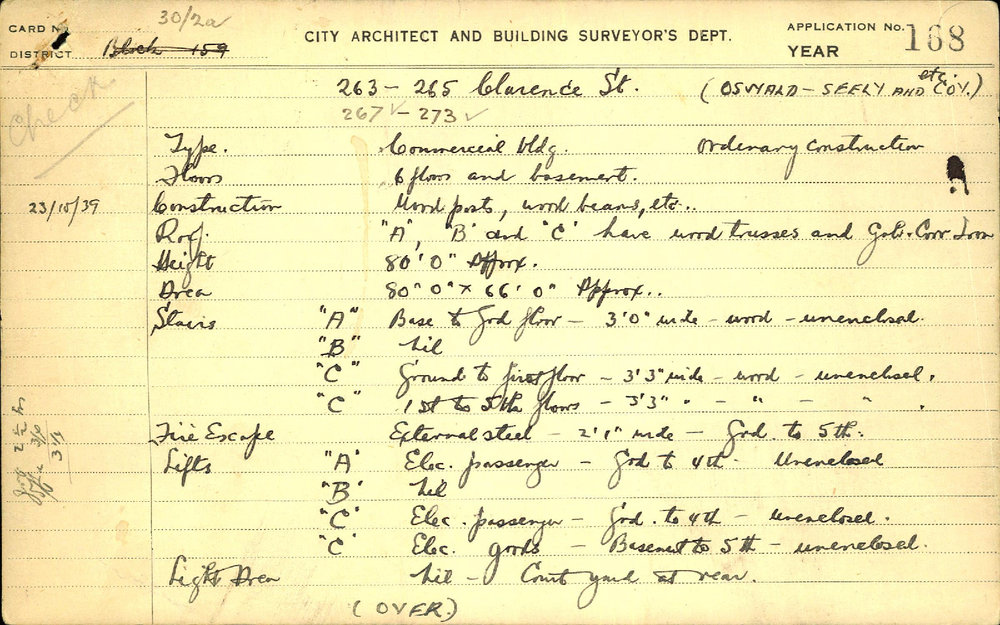 30/2a
CARD No.
DISTRICT Block 159
CITY ARCHITECT AND BUILDING SURVEYOR'S DEPT.
APPLICATION No. 168
YEAR
Check
263 – 265 Clarence St. (OSWALD – SEELY AND COY.) etc.
267 ✓ – 273 ✓
Type. Commercial bldg. Ordinary construction
Floors 6 floors and basement.
23/10/39 Construction Wood posts, wood beams, etc..
Roof. "A", "B" and "C" have wood trusses and Galv. Corr Iron
Height 80' 0" Approx.
Area 80' 0" x 66' 0" Approx..
Stairs "A" Base to Grd floor – 3'0" wide – wood – unenclosed.
"B" Nil
"C" Ground to first floor – 3'3" wide – wood – unenclosed.
"C" 1st to 5th floors – 3'3" " – " – " .
Fire Escape External steel – 2'1" wide – Grd. to 5th.
Lifts "A" Elec. passenger – Grd to 4th. Unenclosed
"B" Nil
"C" Elec. passenger – Grd. to 4th – unenclosed.
"C" Elec. goods – Basement to 5th – unenclosed.
Light Area Nil – Court yard at rear.
(OVER.)